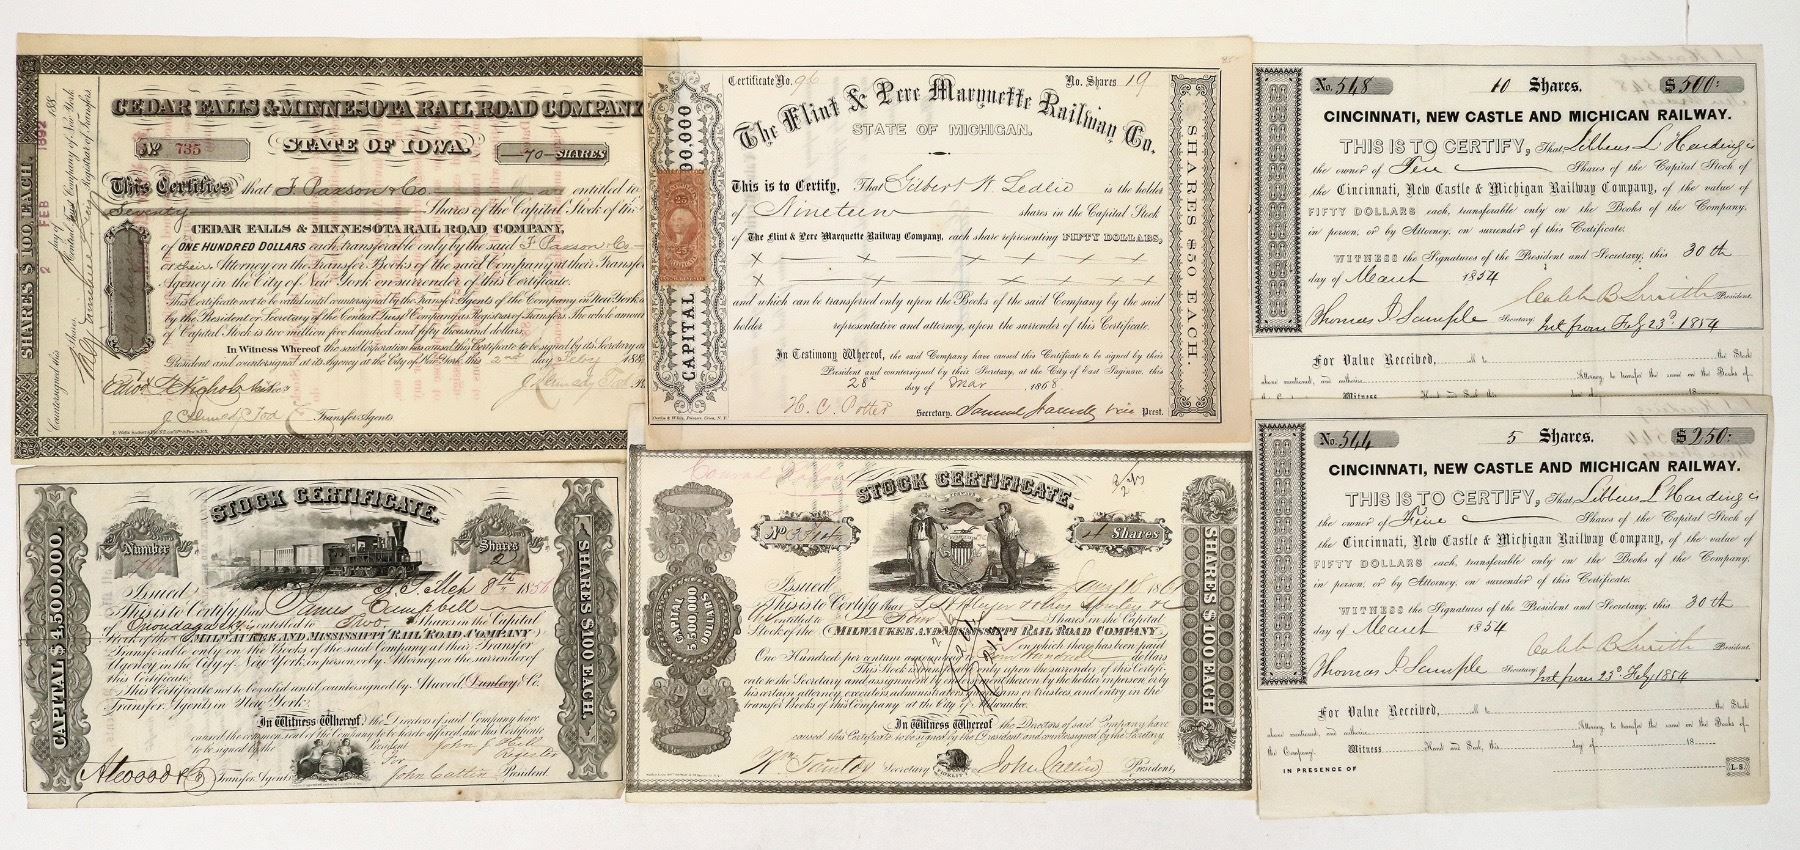 CEDAR FALLS & MINNESOTA RAIL ROAD COMPANY
STATE OF IOWA.
No 735
70 SHARES
SHARES $100 EACH.
2 FEB 1882
This Certifies that J. Paxson & Co. entitled to
Seventy Shares of the Capital Stock of the
CEDAR FALLS & MINNESOTA RAIL ROAD COMPANY,
of ONE HUNDRED DOLLARS each, transferable only by the said J. Paxson & Co
or their Attorney on the Transfer Books of the said Company at their Transfer
Agency in the City of New York on surrender of this Certificate.
This Certificate not to be valid until countersigned by the Transfer Agents of the Company in New York
by the President or Secretary of the Central Trust Company as Registrar of Transfers. The whole amount
of Capital Stock is two million five hundred and fifty thousand dollars.
In Witness Whereof the said Corporation has caused this Certificate to be signed by its Secretary
President and countersigned at its Agency at the City of New York this 2nd day Feby 188
J. Kennedy Tod
Transfer Agents
Certificate No. 96
No. Shares 19
The Flint & Pere Marquette Railway Co.
STATE OF MICHIGAN.
CAPITAL
SHARES $50 EACH.
This is to Certify, That Gilbert W Ledlie is the holder
of Nineteen shares in the Capital Stock
of The Flint & Pere Marquette Railway Company, each share representing FIFTY DOLLARS,
and which can be transferred only upon the Books of the said Company by the said
holder representative and attorney, upon the surrender of this Certificate.
In Testimony Whereof, the said Company have caused this Certificate to be signed by their
President and countersigned by their Secretary, at the City of East Saginaw, this
28th day of Mar 1868
H. C. Potter Secretary. Vice Prest.
No. 548 10 Shares. $500:
CINCINNATI, NEW CASTLE AND MICHIGAN RAILWAY.
THIS IS TO CERTIFY, That Libbeus L Harding is
the owner of Ten Shares of the Capital Stock of
the Cincinnati, New Castle & Michigan Railway Company, of the value of
FIFTY DOLLARS each, transferable only on the Books of the Company,
in person, or by Attorney, on surrender of this Certificate.
WITNESS the Signatures of the President and Secretary, this 30th
day of March 1854
Caleb B Smith President.
Thomas J Sample Secretary. Int from Feby 23d 1854
For Value Received, the Stock
above mentioned, and authorize Attorney to transfer the same on the Books of
Witness Hand and Seal, this day of 18
No. 544 5 Shares. $250:
CINCINNATI, NEW CASTLE AND MICHIGAN RAILWAY.
THIS IS TO CERTIFY, That Libbeus L Harding is
the owner of Five Shares of the Capital Stock of
the Cincinnati, New Castle & Michigan Railway Company, of the value of
FIFTY DOLLARS each, transferable only on the Books of the Company,
in person, or by Attorney, on surrender of this Certificate.
WITNESS the Signatures of the President and Secretary, this 30th
day of March 1854
Caleb B Smith President.
Thomas J Sample Secretary. Int from 23d Feby 1854
For Value Received, the Stock
above mentioned, and authorize Attorney to transfer the same on the Books of
the Company. Witness Hand and Seal, this day of 18
IN PRESENCE OF
L.S.
STOCK CERTIFICATE.
Number
Shares
2
CAPITAL $4,500,000.
SHARES $100 EACH.
Issued 8th 1856
This is to Certify that James Campbell
of Onondaga is entitled to Two Shares in the Capital
Stock of the (MILWAUKEE AND MISSISSIPPI RAIL ROAD COMPANY)
Transferable only on the Books of the said Company at their Transfer
Agency in the City of New York in person or by Attorney on the surrender of
this Certificate.
This Certificate not to be valid until countersigned by Atwood Dunlavy Co.
Transfer Agents in New York.
In Witness Whereof, the Directors of said Company have
caused the common seal of the Company to be hereto affixed and this Certificate
to be signed by the President
Atwood & Co Transfer Agents
John Catlin President
STOCK CERTIFICATE.
4 Shares
CAPITAL 3,500,000 DOLLARS
SHARES $100 EACH
Issued
This is to Certify that
is entitled to Four Shares in the Capital
Stock of the (MILWAUKEE AND MISSISSIPPI RAIL ROAD COMPANY) on which there has been paid
One Hundred per centum amounting to Four Hundred dollars
This Stock is transferable only upon the surrender of this Certificate
to the Secretary and assignment by endorsement thereon by the holder in person or by
his certain attorney, executors, administrators, assigns or trustees, and entry in the
transfer Books of this Company at the City of Milwaukee.
In Witness Whereof the Directors of said Company have
caused this Certificate to be signed by the President and countersigned by the Secretary.
Wm Taintor Secretary FIDELITY John Catlin President,